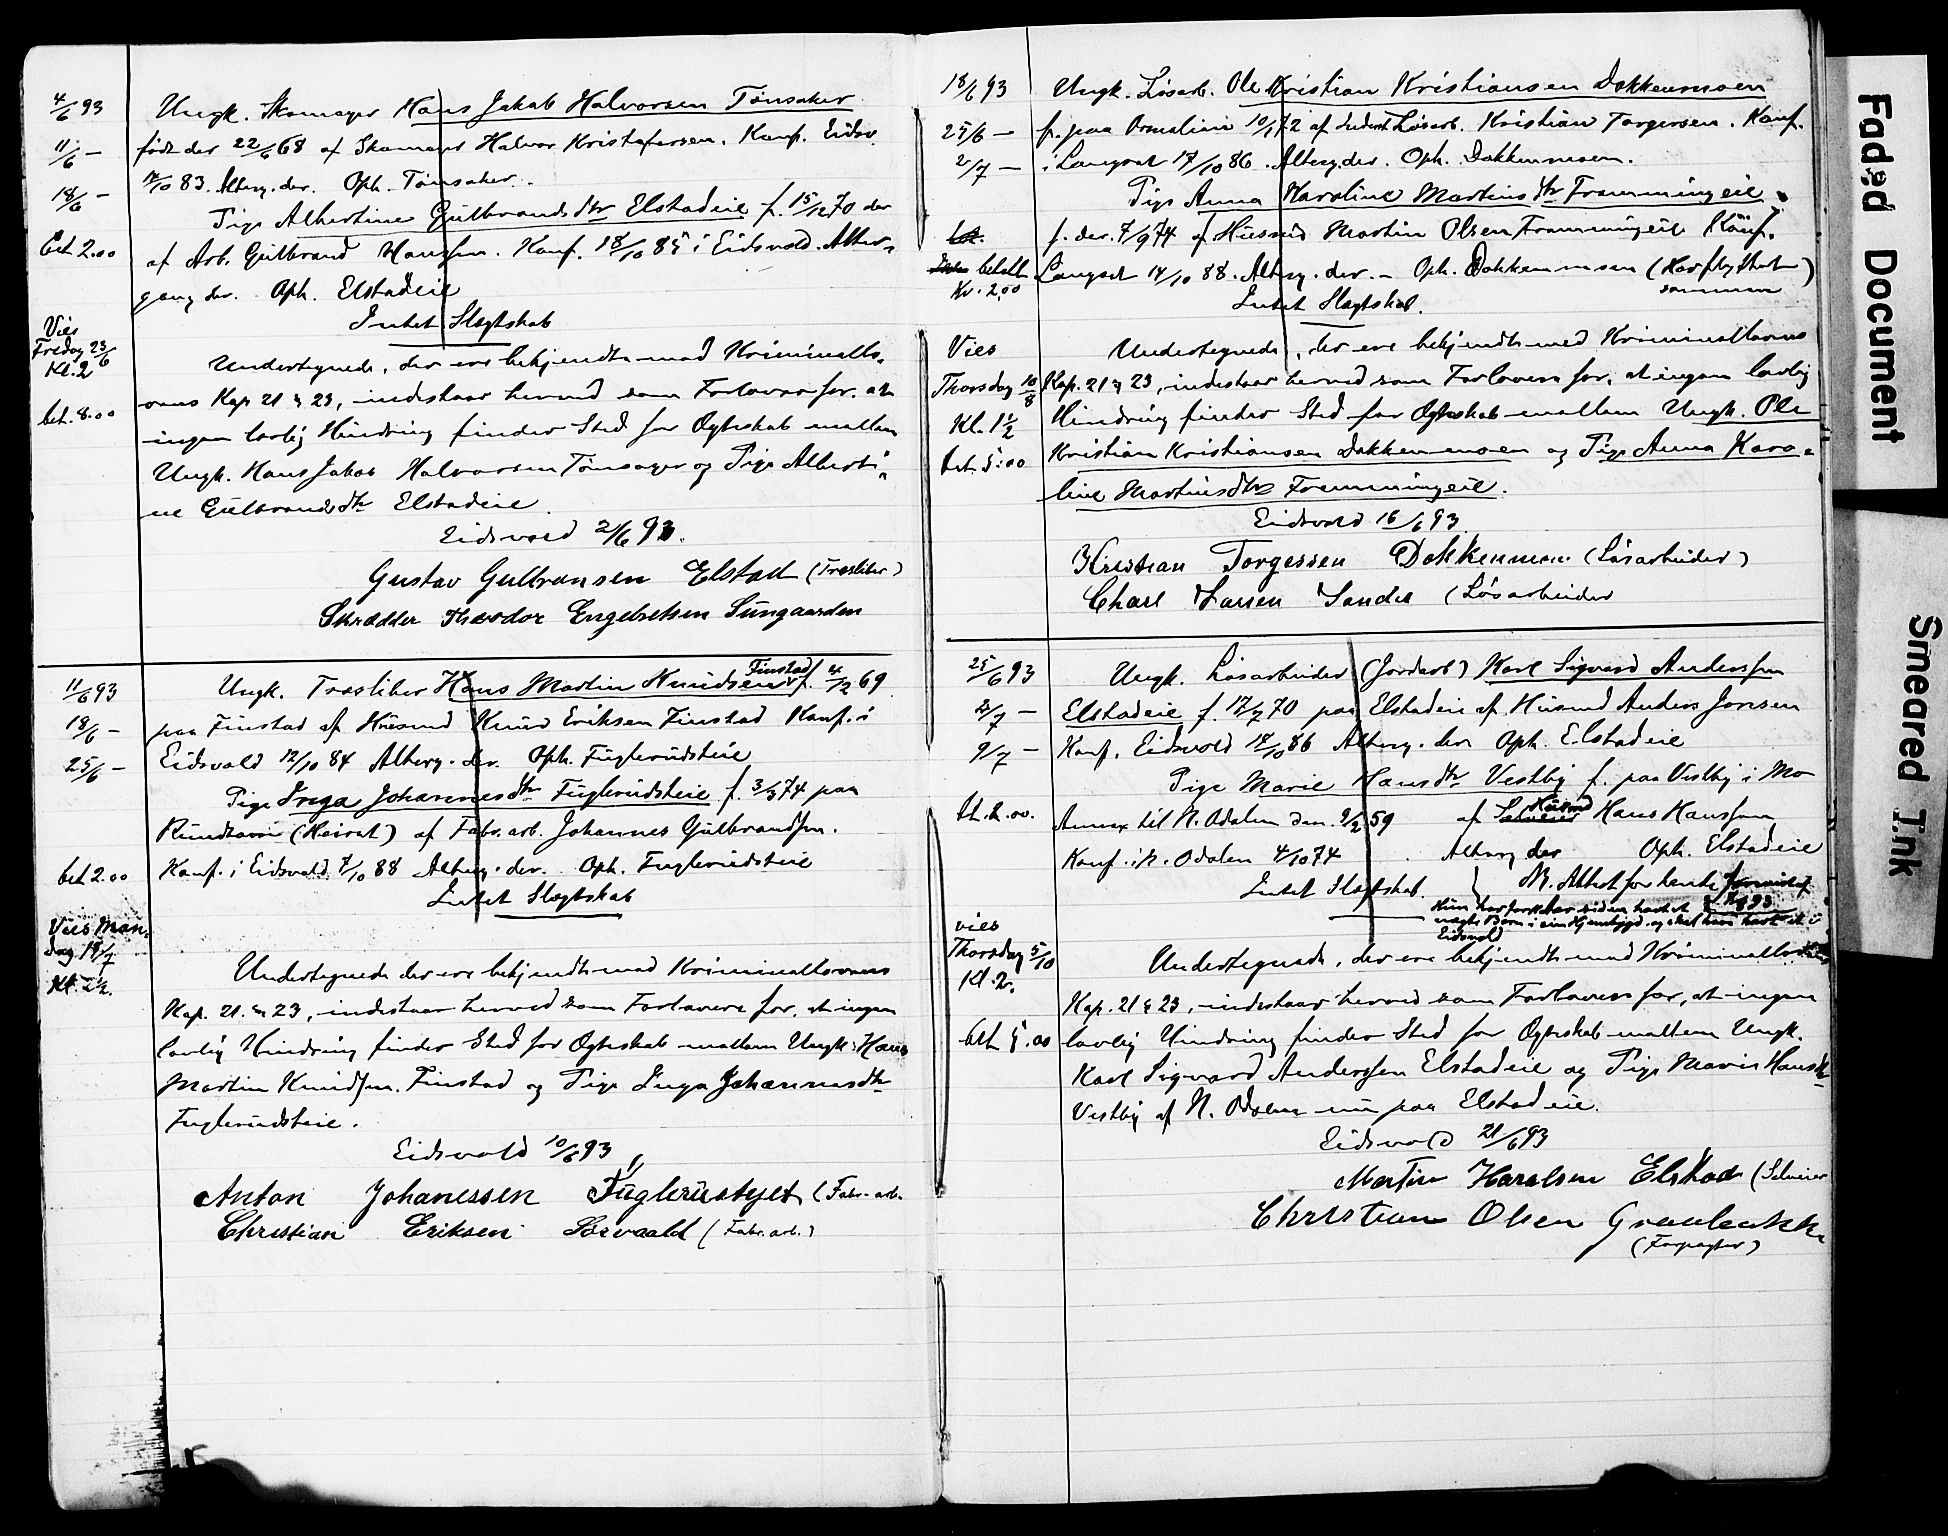 4/6 93
11/6 –
18/6 –
bet. 2.00
Vies
Fredag 23/6
Kl. 2
bet. 8.00
Ungk. Skomager Hans Jakob Halvorsen Tønsaker
født der 22/6 68 af Skomager Halvor Kristofersen. Konf. Eidsv.
/10 83. Alterg. der. Oph. Tønsaker.
Pige Albertine Gulbrandsdtr Elstadeie f. 15/12 70 der
af Arb. Gulbrand Hanssen. Konf. 18/10 85 i Eidsvold. Alter-
gang der. Oph. Elstadeie
Intet Slegtskab
Undertegnede, der ere bekjendte med Kriminallo-
vens Kap 21 & 23, indestaar herved som Forlovere for, at
ingen lovlig Hindring finder Sted for Ægteskab mellem
Ungk. Hans Jakob Halvorsen Tønsager og Pige Alberti-
ne Gulbrandsdtr Elstadeie.
Eidsvold 2/6 93.
Gustav Gulbransen Elstad (Træsliber)
Skrædder Theodor Engebretsen Sungaarden
11/6 93
18/6 –
25/6 –
bet 2.00
Vies Man-
dag
Kl. 2½.
Ungk. Træsliber Hans Martin Knudsen Finstad f. 4/2 69
paa Finstad af Husmd Knud Eriksen Finstad Konf. i
Eidsvold 12/10 84 Alterg. der. Oph. Fuglerudsteie
Pige Inga Johannesdtr Fuglerudsteie f. 3/3 74 paa
Rundtoven (Heirat) af Fabr. arb. Johannes Gulbrandsen.
Konf. i Eidsvold 7/10 88 Alterg. der. Oph. Fuglerudsteie
Intet Slegtskab
Undertegnede der ere bekjendte med Kriminallovens
Kap. 21 & 23, indestaar herved som Forlovere for, at ingen
lovlig Hindring finder Sted for Ægteskab mellem Ungk. Hans
Martin Knudsen Finstad og Pige Inga Johannesdtr
Fuglerudsteie.
Eidsvold 10/6 93
Anton Johanessen Fuglerustejet (Fabr. arb.
Christian Eriksen Sørvaald (Fabr. arb.)
18/6 93
25/6 –
2/7 –
bet.
betalt
Kr. 2,00
Vies
Thorsdag 10/8
Kl. 1½
bet. 5.00
Ungk. Løsarb. Ole Kristian Kristiansen Dokkenmoen
f. paa Ormalien 10/1 72 af Løsarb. Kristian Torgersen. Konf.
i Langset 17/10 86. Alterg. der. Oph. Dokkenmoen.
Pige Anna Karoline Martinsdtr Framningeie
f. der. 7/9 74 af Husmd Martin Olsen Framningeie Konf.
Langset 14/10 88. Alterg. der. – Oph. Dokkenmoen (Har flyttet
sammen)
Intet Slegtskab.
Undertegnede, der ere bekjendte med Kriminallovens
Kap. 21 & 23, indestaar herved som Forlovere for, at ingen lovlig
Hindring finder Sted for Ægteskab mellem Ungk. Ole
Kristian Kristiansen Dokkenmoen og Pige Anna Karo-
line Martinsdtr Framningeie.
Eidsvold 16/6 93
Kristian Torgessen Dokkenmoen (Løsarbeider)
Charl Larsen Sander (Løsarbeider
25/6 93
2/7 –
9/7 –
bt. 2.00.
Vies
Thorsdag 5/10
Kl. 2.
bet 5.00
Ungk. Løsarbeider (Jordarb) Karl Sigvard Anderssen
Elstadeie f. 17/7 70 paa Elstadeie af Husmd Anders Jonsen
Konf. Eidsvold 18/10 86 Alterg. der Oph. Elstadeie
Pige Marie Hansdtr Vestby f. paa Vestby i Mo
Annex til N. Odalen den 9/2 59 af Selveier Husmd Hans Hanssen
Konf. i N. Odalen 4/10 74 Alterg der Oph. Elstadeie
Intet Slegtskab NB. Attest for hende
93
Hun har for siden havt et
uægte Barn i sin Hjembygd. og skal have havt et i
Eidsvold
Undertegnede, der ere bekjendte med Kriminallovens
Kap. 21 & 23, indestaar herved som Forlovere for, at ingen
lovlig Hindring finder Sted for Ægteskab mellem Ungk.
Karl Sigvard Anderssen Elstadeie og Pige Marie Hansdtr
Vestby af N. Odalen nu paa Elstadeie.
Eidsvold 21/6 93
Martin Haralsen Elstad (Selveier
Christian Olsen Graalenkk
(Forpagter)
Faded Document
Smeared Ink